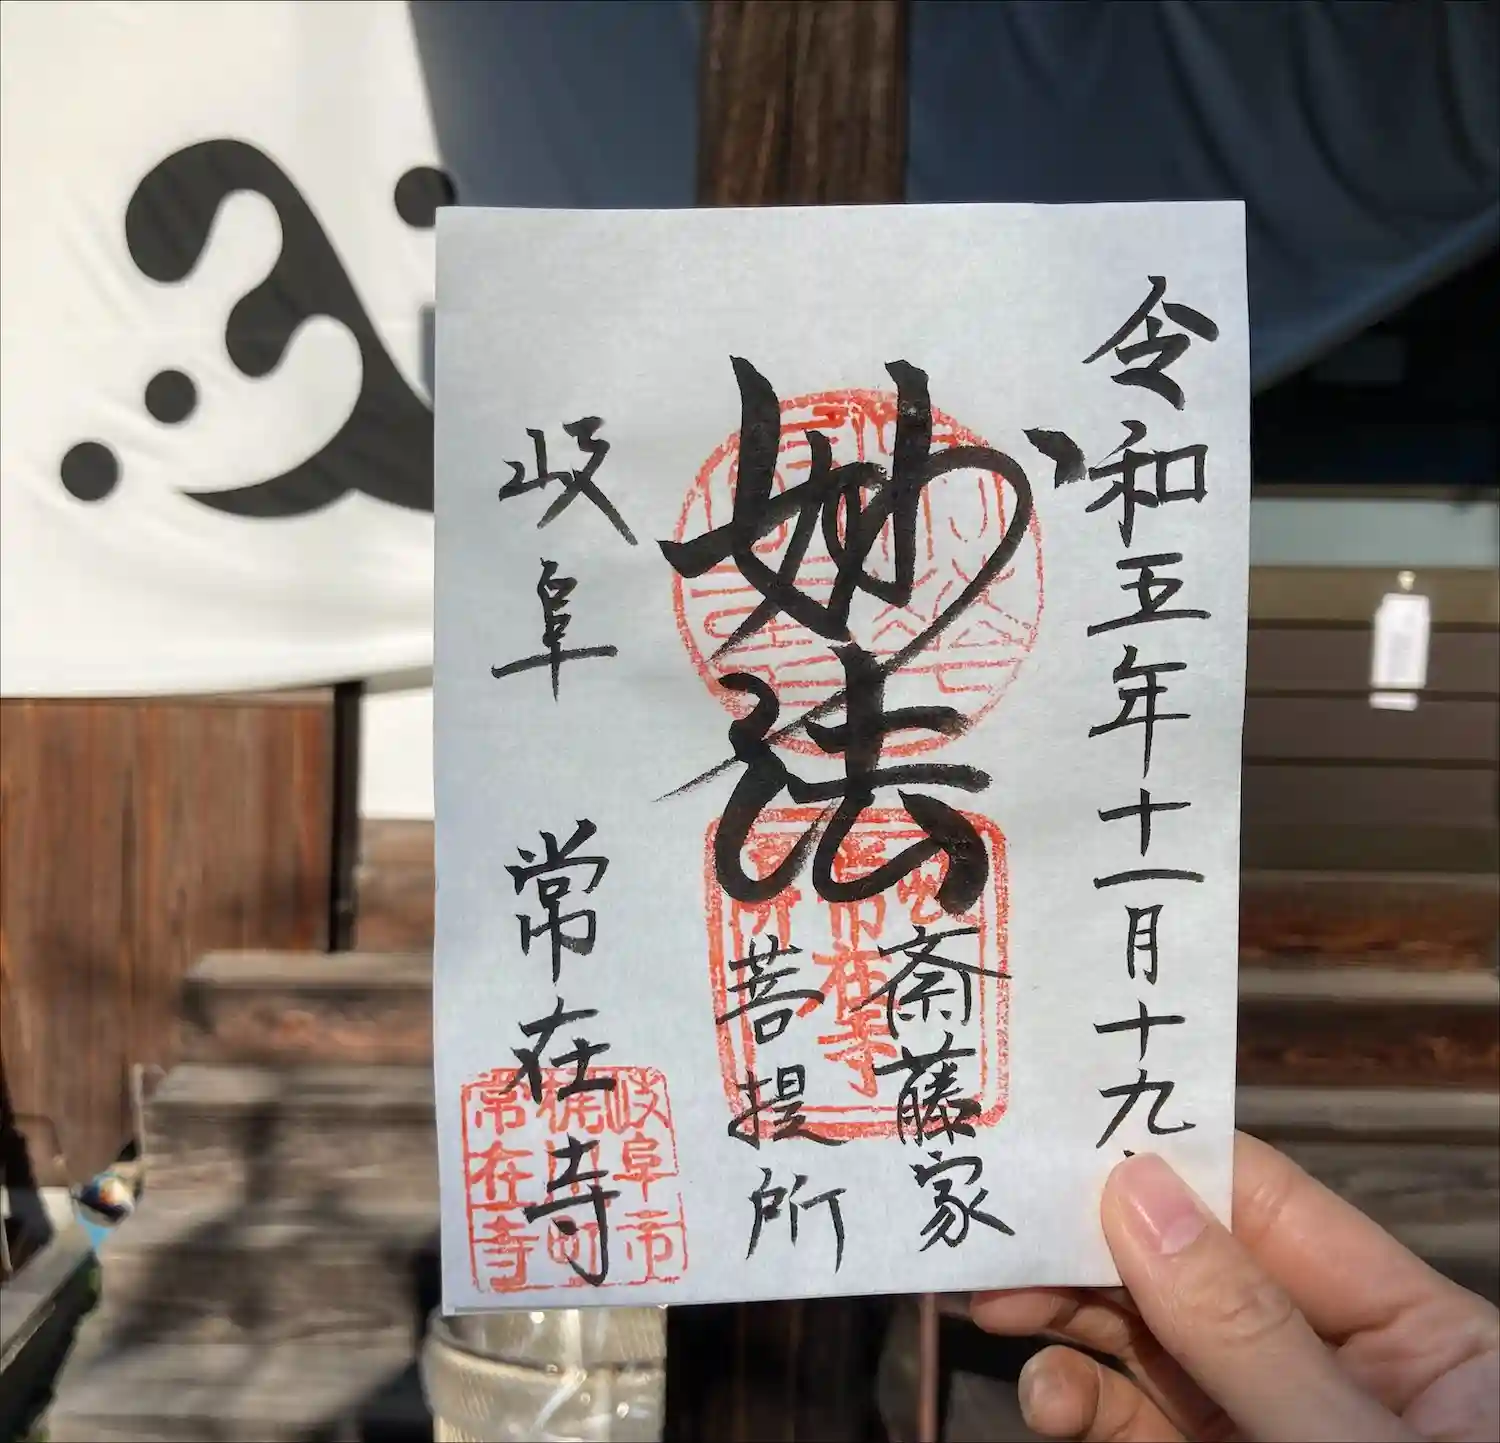 令和五年十一月十九
妙法
斎藤家
菩提所
岐阜
常在寺
岐阜市
常在寺